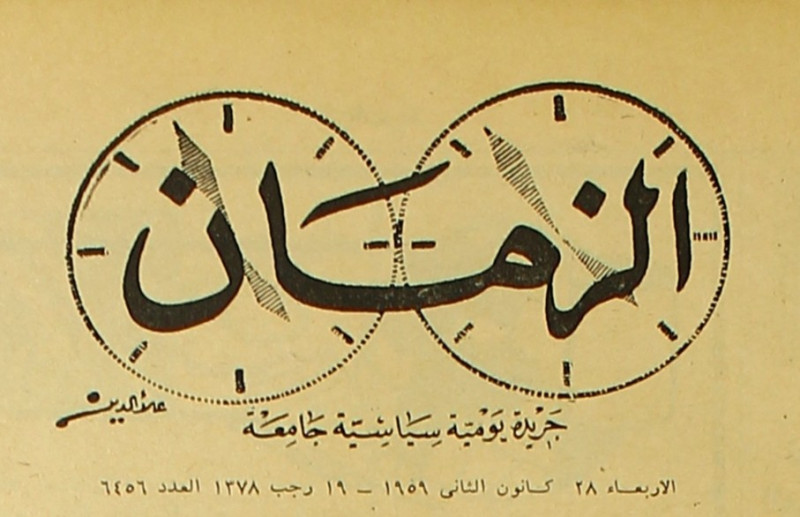 الزمان
علاء الدين
جَرِيْدَة يَوْمِيَّة سِيَاسِيَّة جَامِعَة
الاربعاء ٢٨ كانون الثانى ١٩٥٩ – ١٩ رجب ١٣٧٨ العدد ٦٤٥٦